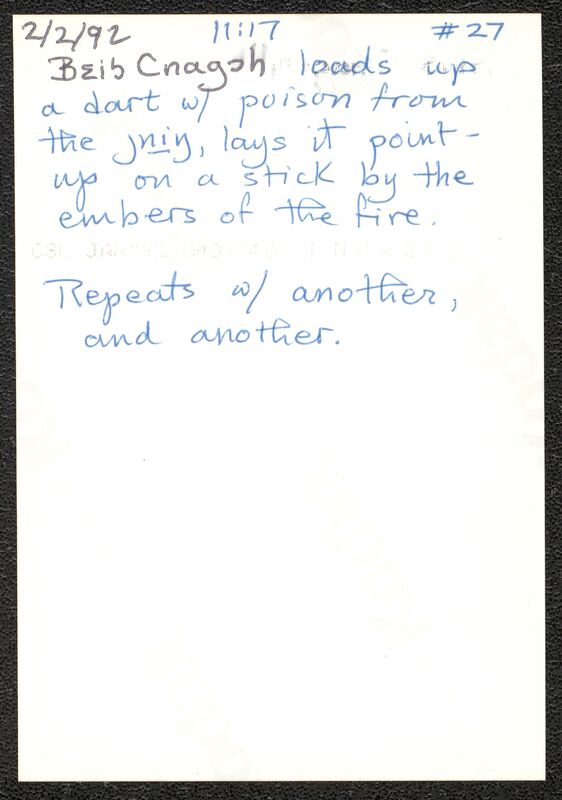 2/2/92 11:17 #27
Bɛih Cnagɔh loads up
a dart w/ poison from
the ɟniŋ, lays it point-
up on a stick by the
embers of the fire.
Repeats w/ another,
and another.